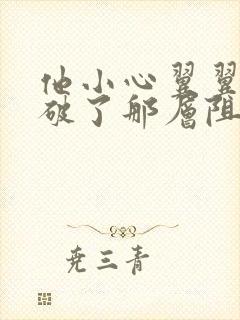 他小心翼翼
破了那层阻
尧三青